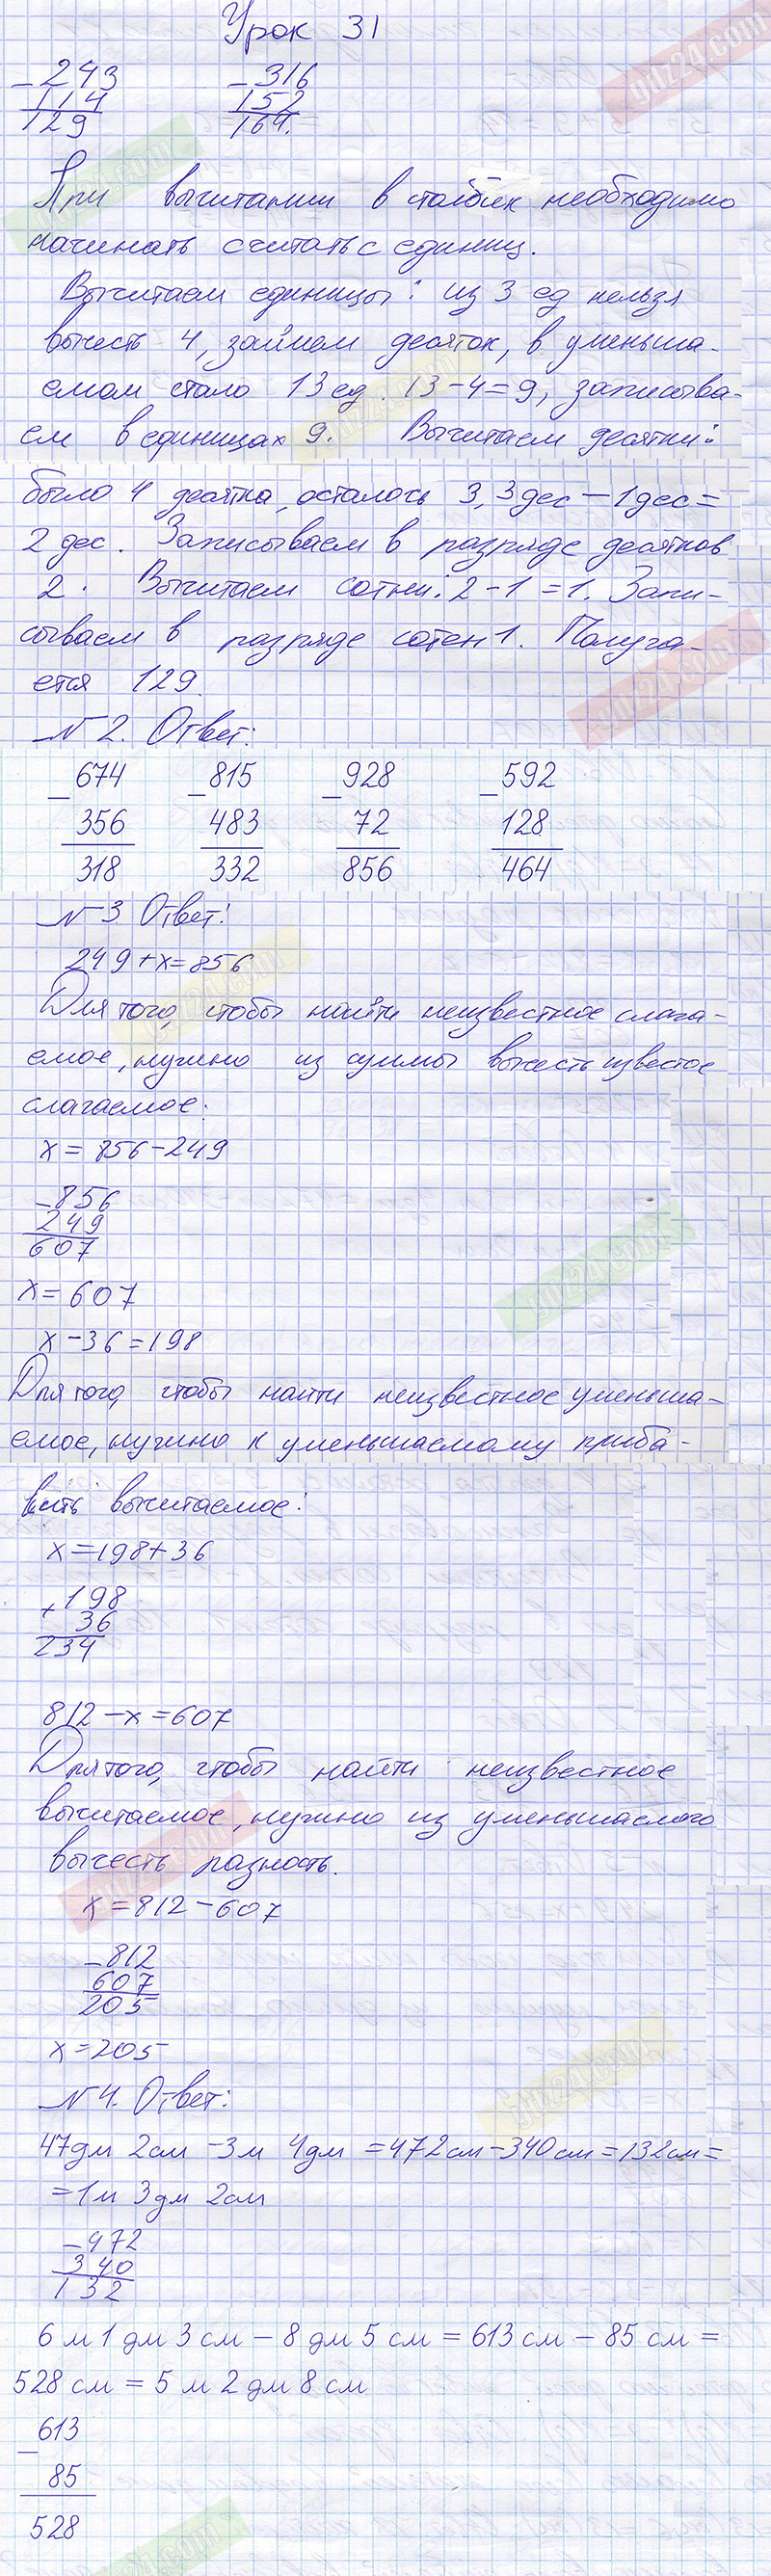 Урок 31
- 243 - 316
114 152
129 164.
При вычитании в столбик необходимо
начинать считать с единиц.
Вычитаем единицы: из 3 ед нельзя
вычесть 4, займем десяток, в уменьша-
емом стало 13 ед. 13-4=9, записыва-
ем в единицах 9. Вычитаем десятки:
было 4 десятка, осталось 3, 3 дес - 1 дес =
2 дес. Записываем в разряде десятков
2. Вычитаем сотни: 2-1=1. Запи-
сываем в разряде сотен 1. Получа-
ется 129.
№2. Ответ:
- 674 - 815 - 928 - 592
356 483 72 128
318 332 856 464
№3 Ответ:
249+x=856
Для того, чтобы найти неизвестное слага-
емое, нужно из суммы вычесть известое
слагаемое:
x=856-249
- 856
249
607
x=607
x-36=198
Для того, чтобы найти неизвестное уменьша-
емое, нужно к уменьшаемому приба-
вить вычитаемое:
x=198+36
+ 198
36
234
812-x=607
Для того, чтобы найти неизвестное
вычитаемое, нужно из уменьшаемого
вычесть разность.
x=812-607
- 812
607
205
x=205
№4. Ответ:
47дм 2см - 3м 4дм = 472см - 340см = 132см =
= 1м 3дм 2см
- 472
340
132
6 м 1 дм 3 см - 8 дм 5 см = 613 см - 85 см =
528 см = 5 м 2 дм 8 см
- 613
85
528